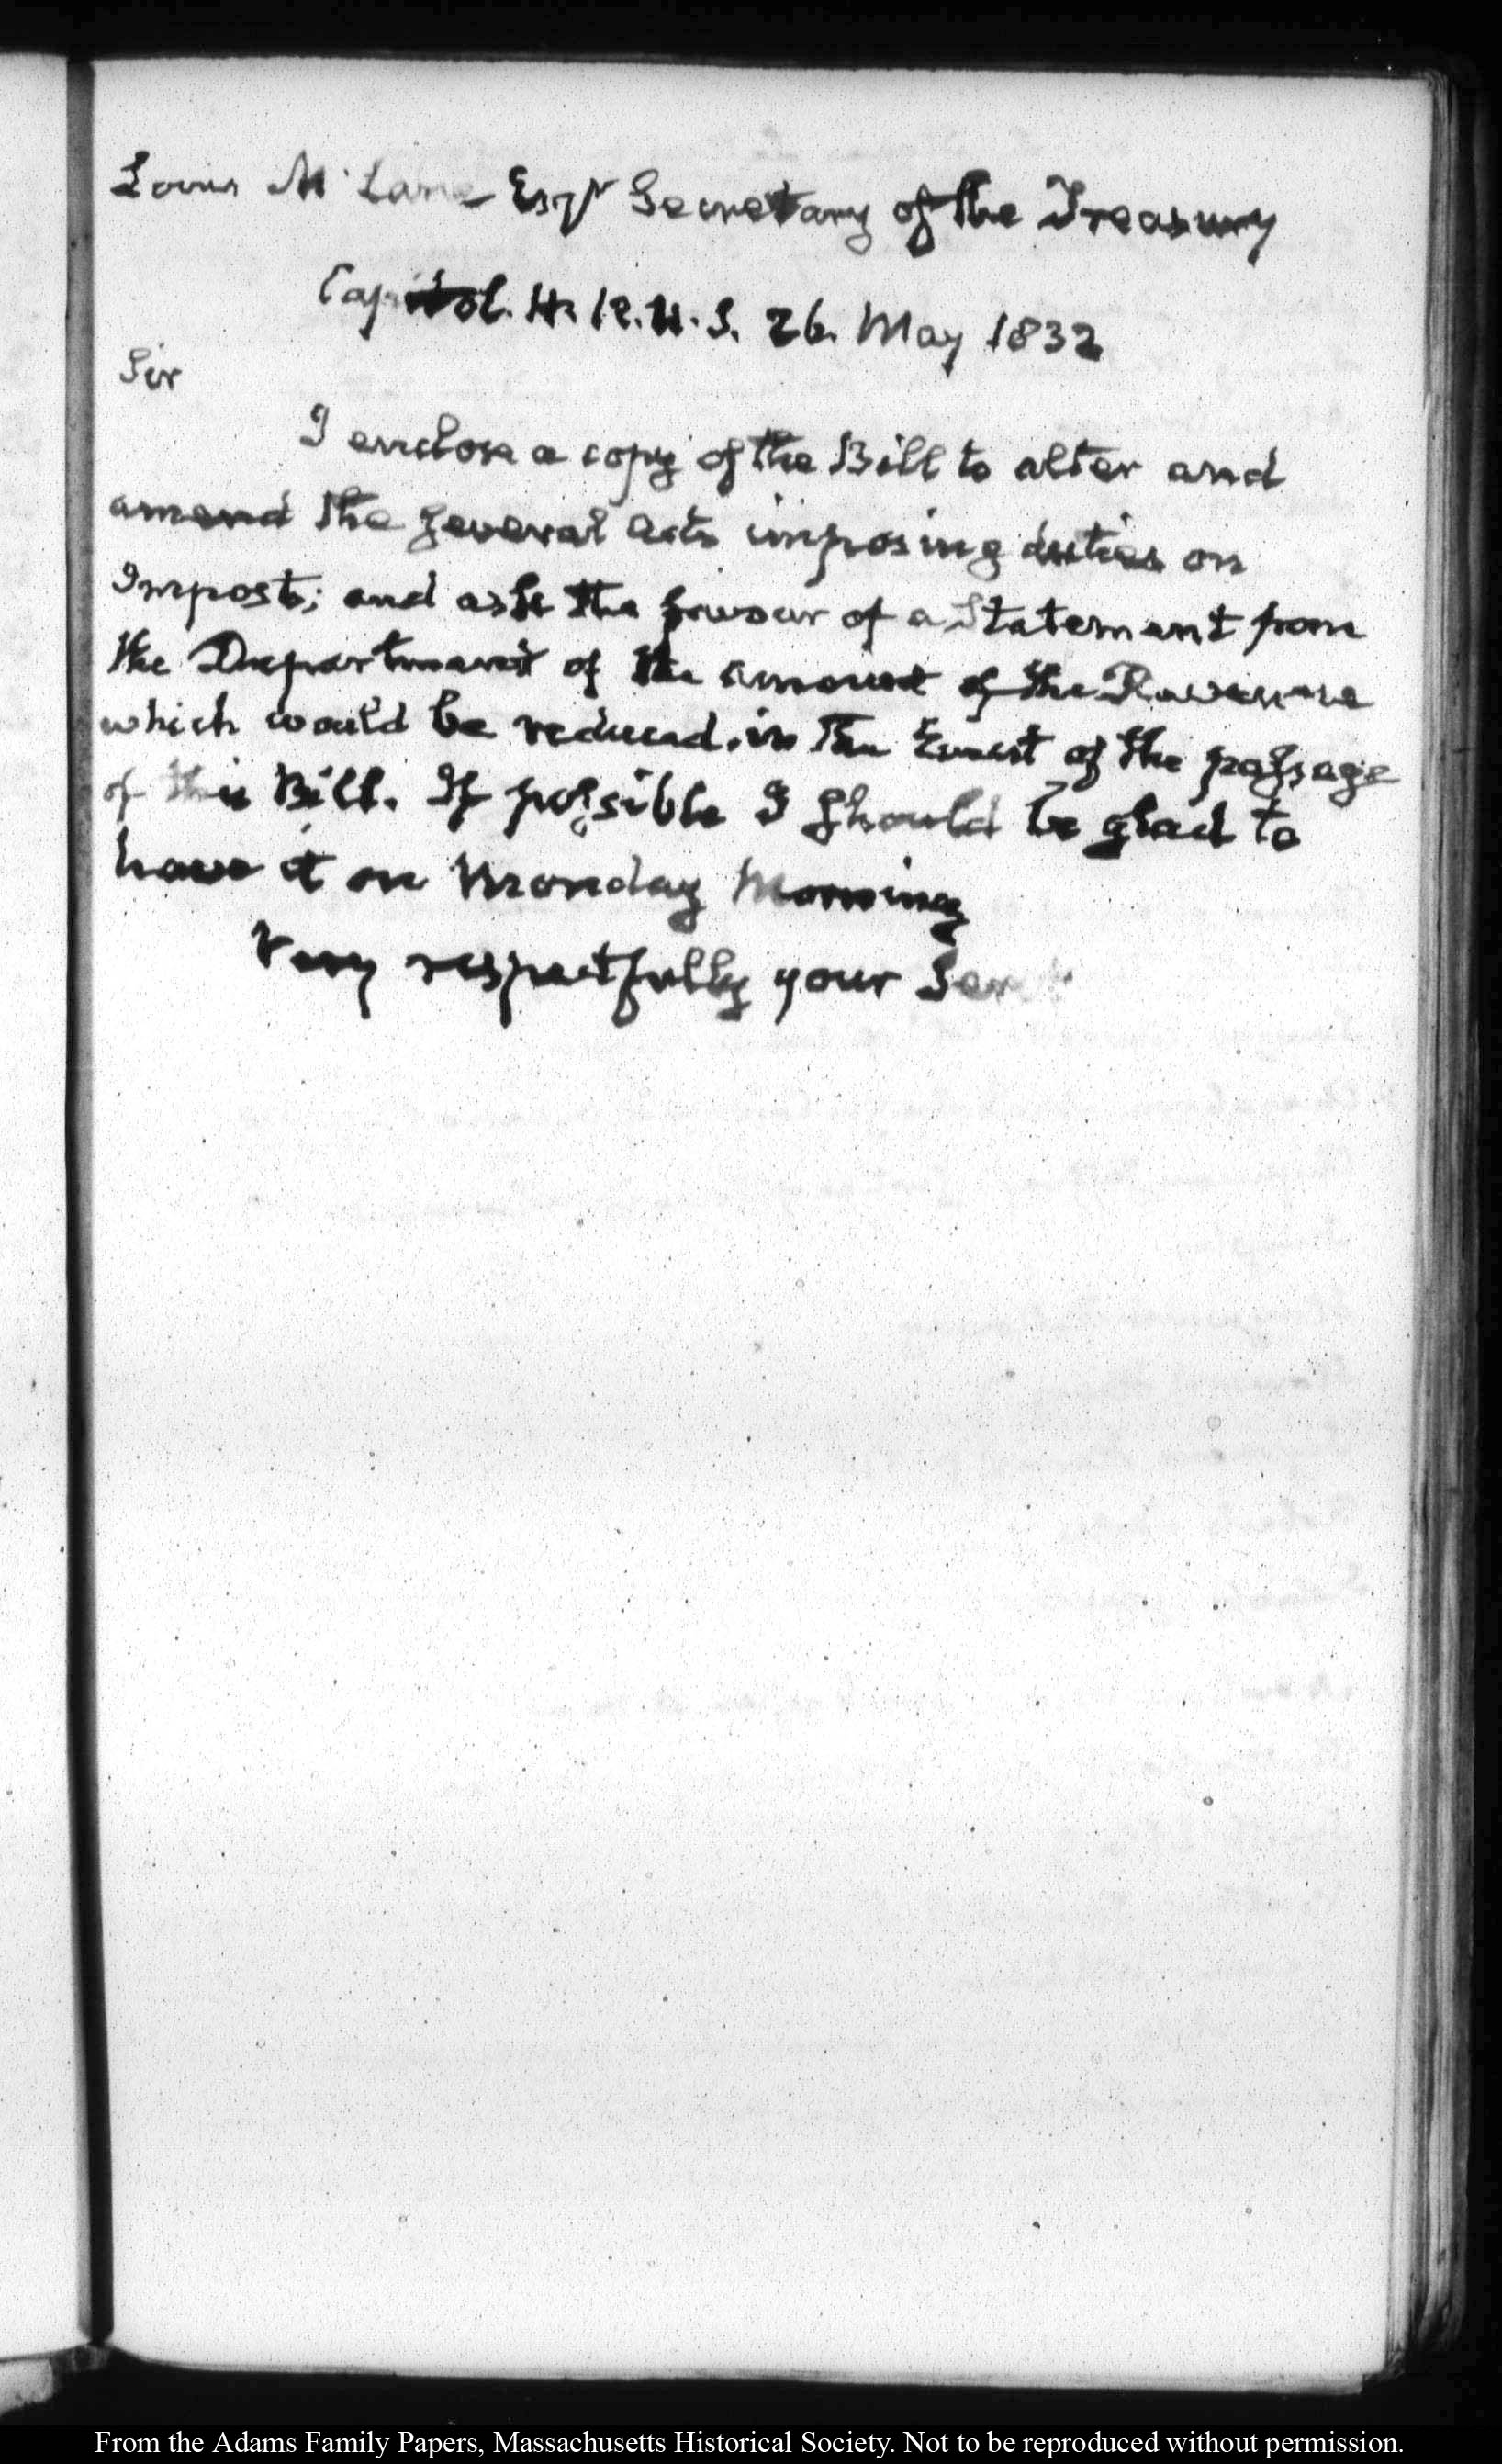 Louis McLane Esqr Secretary of the Treasury
Capitol. H. R. U. S. 26. May 1832
Sir
I enclose a copy of the Bill to alter and
amend the several Acts imposing duties on
Imposts; and ask the favour of a Statement from
the Department of the amount of the Revenue
which would be reduced, in the Event of the passage
of this Bill. If possible I should be glad to
have it on Monday Morning
Very respectfully your Servt
From the Adams Family Papers, Massachusetts Historical Society. Not to be reproduced without permission.